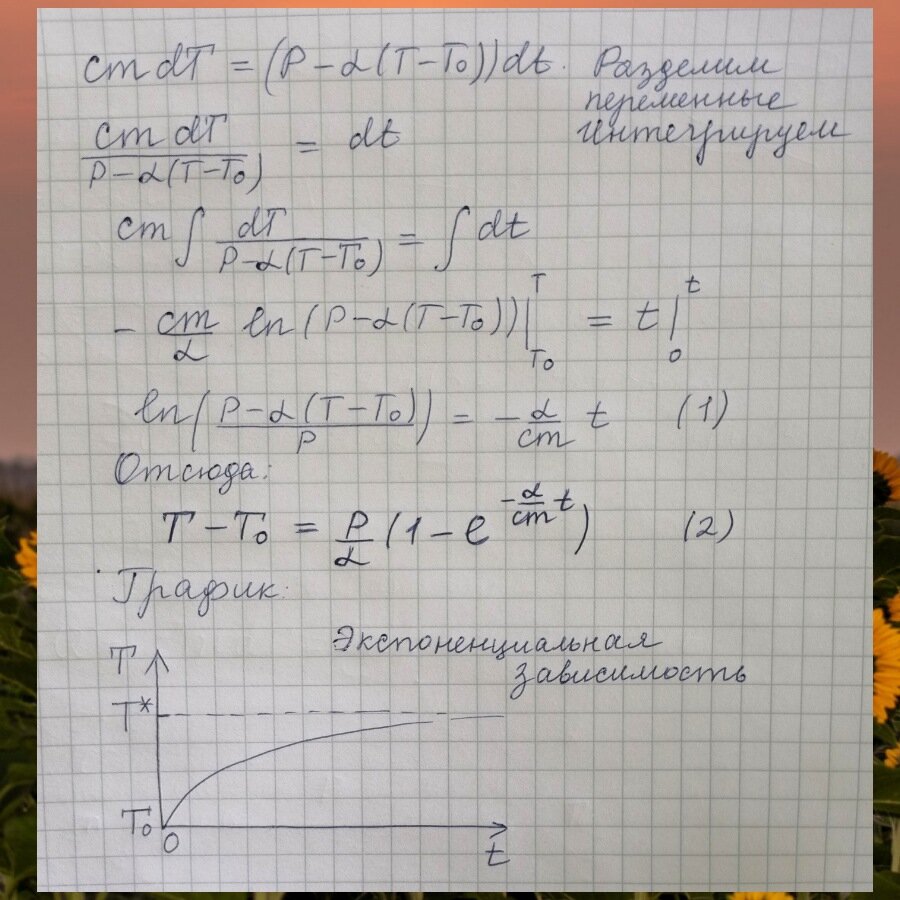 cm dT = (P - α(T - T₀))dt. Разделим
переменные
Интегрируем
cm dT / P - α(T - T₀) = dt
cm ∫ dT / P - α(T - T₀) = ∫ dt
- cm/α ln(P - α(T - T₀)) |ᵀ T₀ = t |ᵗ ₀
ln(P - α(T - T₀) / P) = - α/cm t (1)
Отсюда:
T - T₀ = P/α (1 - e^(-α/cm t)) (2)
График:
Экспоненциальная
зависимость
T
T*
T₀
0
t